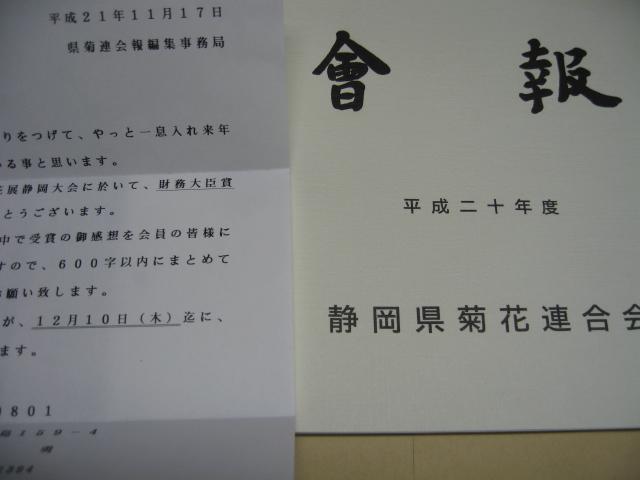 平成21年11月17日
県菊連会報編集事務局
りをつけて、やっと一息入れ来年
る事と思います。
花展静岡大会に於いて、財務大臣賞
とうございます。
中で受賞の御感想を会員の皆様に
すので、600字以内にまとめて
お願い致します。
が、12月10日(木)迄に、
ます。
0801
159-4
會報
平成二十年度
静岡県菊花連合会